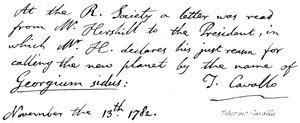 At the R. Society a letter was read
from Mr. Hershill to the President, in
which Mr. H. declares his just reason, for
calling the new planet by the name of
Georgium sidus.
T. Cavallo
November the 13th. 1782.
Tiberius Cavallo